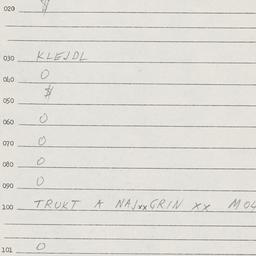 020 $
030 KLEJDL
040 O
$
050
060 O
070 O
080 O
090 O
100 TRUKT A NAJxxGRIN xx MOL
101 O